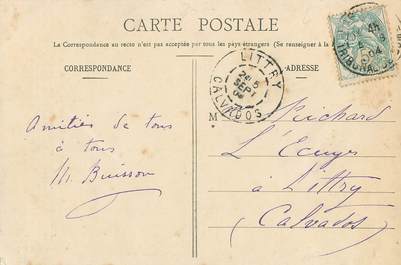 CARTE POSTALE
La Correspondance au recto n'est pas acceptée par tous les pays étrangers (Se renseigner à la
CORRESPONDANCE
ADRESSE
LITTRY
5
SEPT
04
CALVADOS
Amitiés de tous
à tous
M. Buisson
M Richard
L'Ecuyer
à Littry
(Calvados)